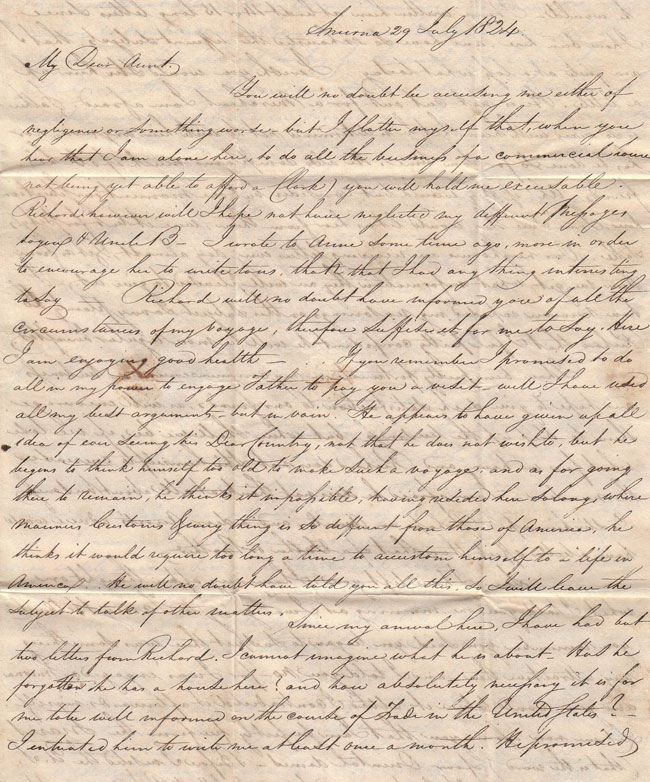 Smirna 29 July 1824
My Dear Aunt.
You will no doubt be accusing me either of
negligence or something worse – but I flatter myself that, when you
hear that I am alone here, to do all the business of a commercial house
not being yet able to afford a Clerk) you will hold me excusable.
Richard however will I hope not have neglected my different Messages
to you & Uncle B – I wrote to Anne some time ago, more in order
to encourage her to write to us, than that I had any thing interesting
to say Richard will no doubt have informed you of all the
circumstances of my voyage, therefore suffice it for me to say. Here
I am enjoying good health – If you remember I promised to do
all in my power to engage Father to pay you a visit – well I have used
all my best arguments – but in vain. He appears to have given up all
idea of ever seeing his Dear Country, not that he does not wish to, but he
begins to think himself too old to make such a voyage, and as for going
there to remain, he thinks it impossible, having resided here so long, where
manners Customs & every thing is so different from those of America, he
thinks it would require too long a time to accustom himself to a life in
America. He will no doubt have told you all this. So I will leave the
subject to talk of other matters.
Since my arrival here, I have had but
two letters from Richard. I cannot imagine what he is about – Has he
forgotten he has a house here? and how absolutely necessary it is for
me to be well informed on the course of Trade in the United States? –
I entreated him to write me at least once a month. He promised